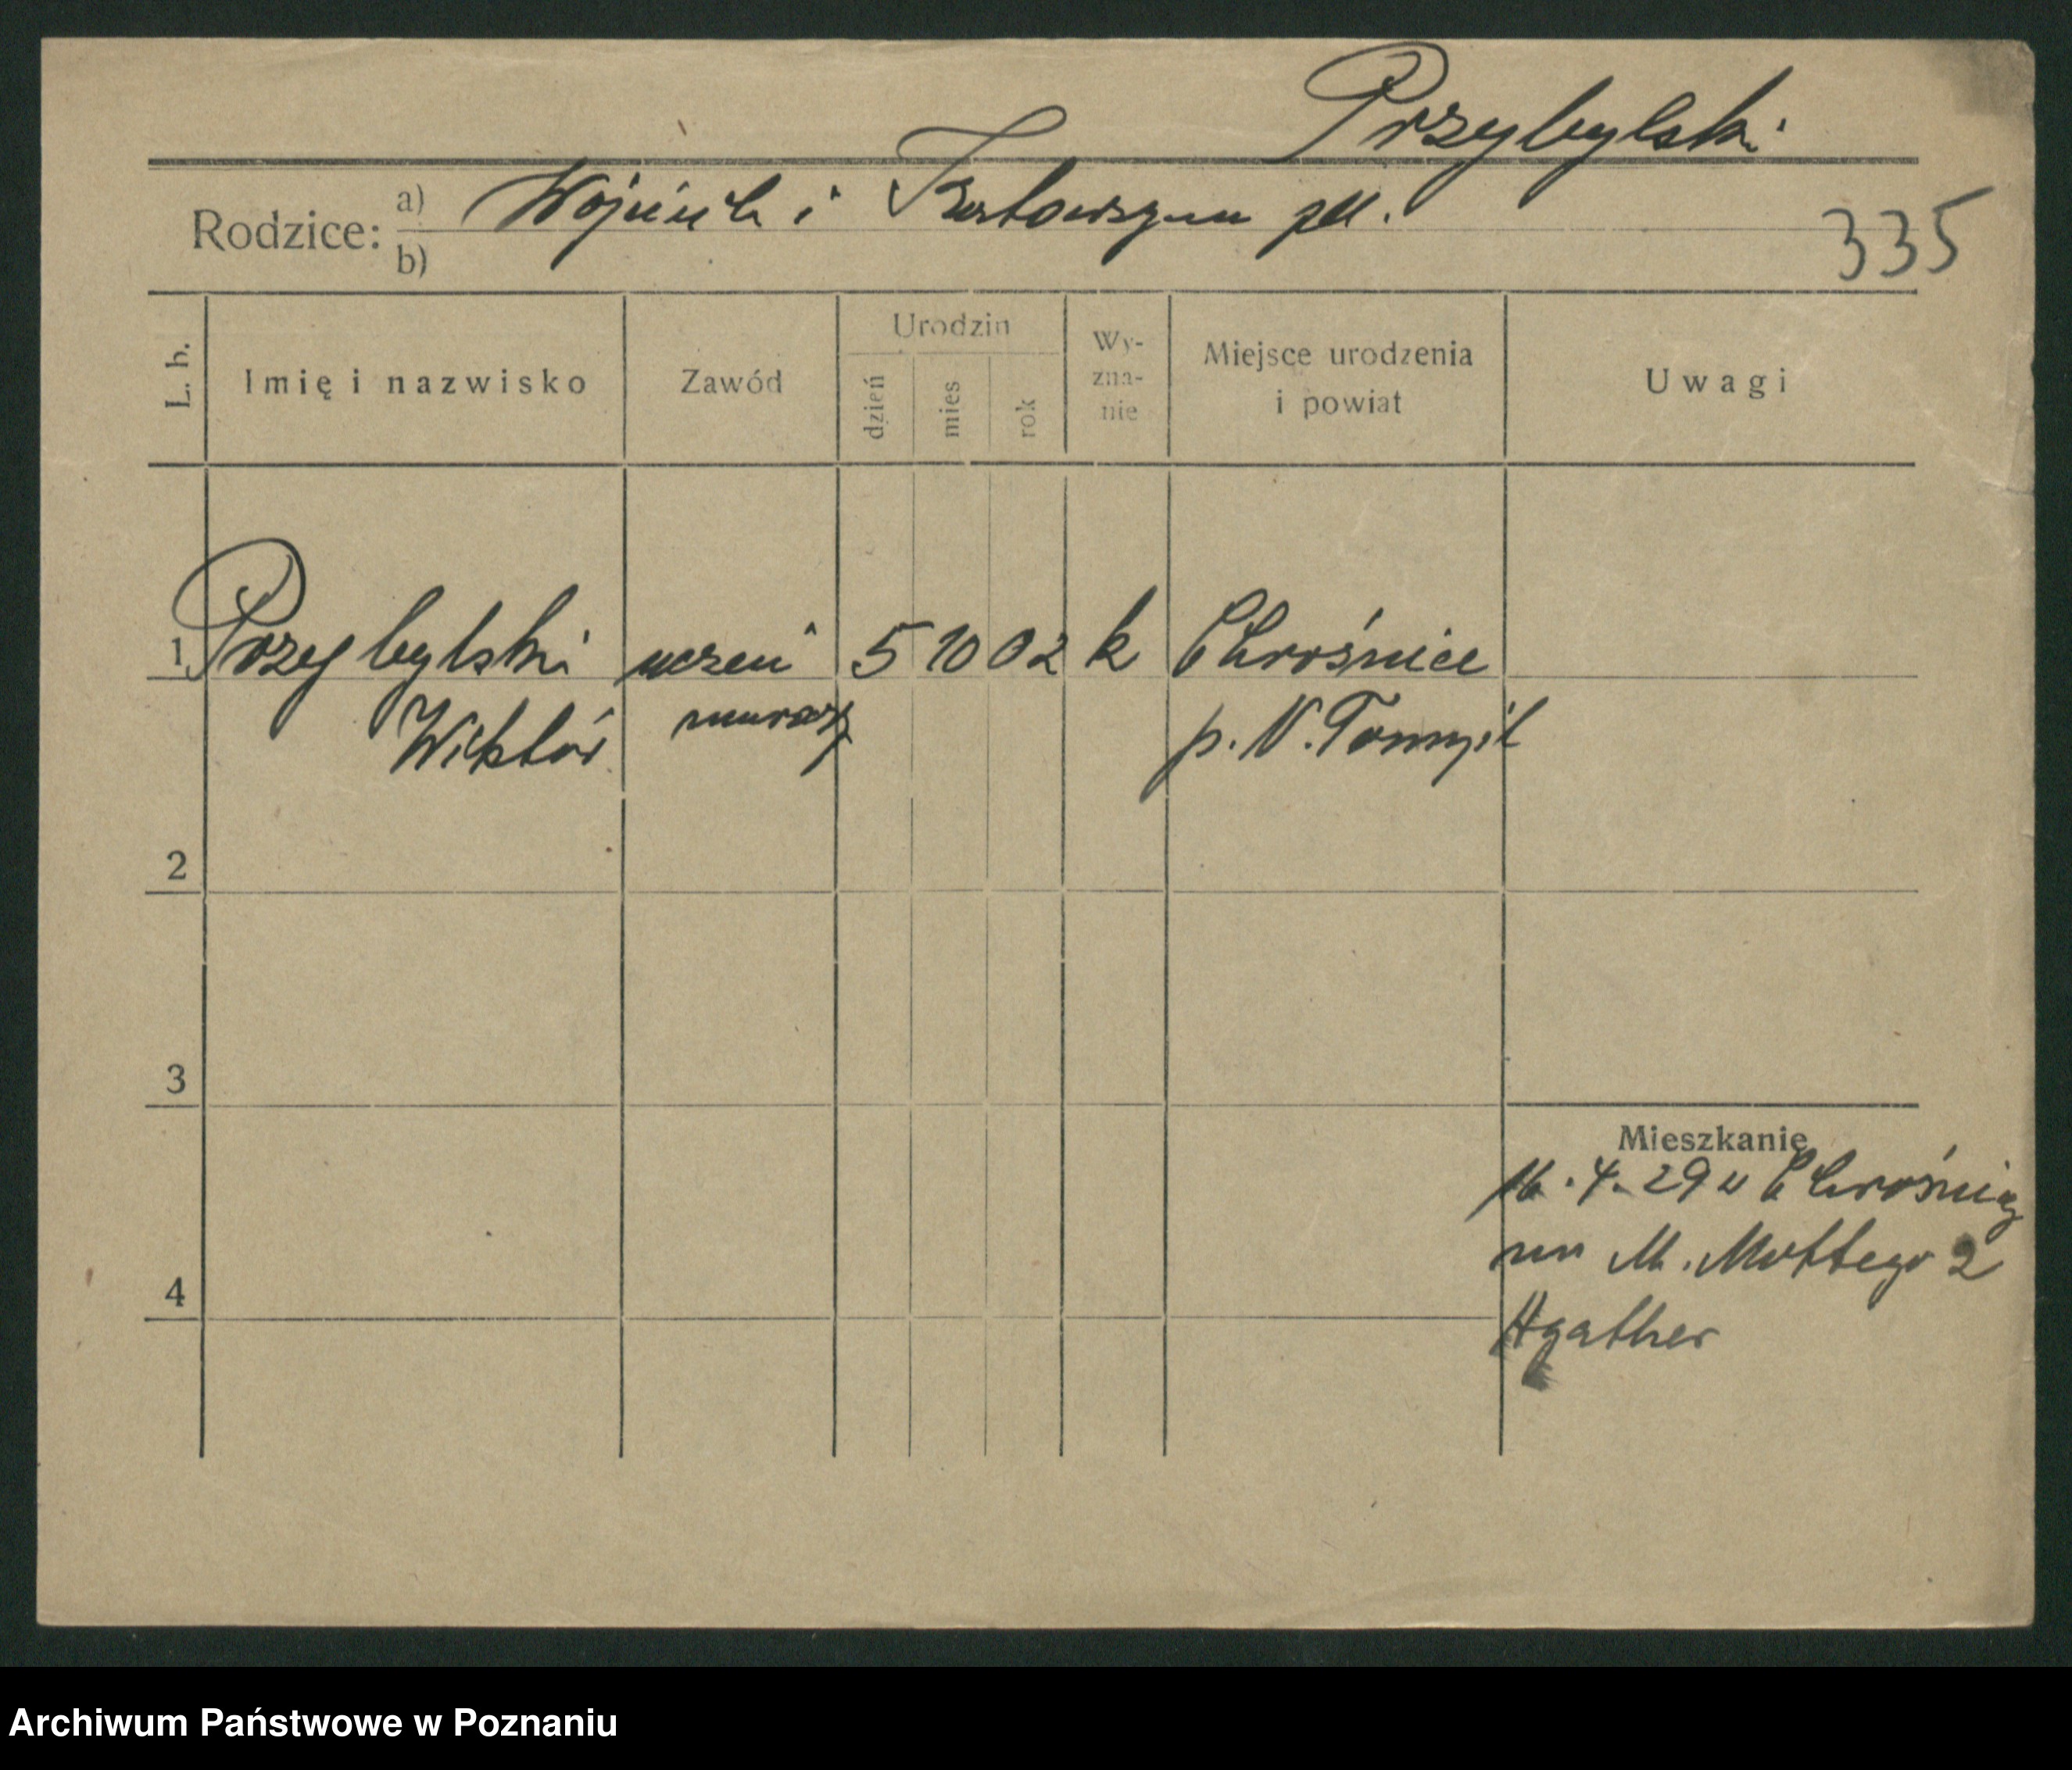 Przybylski
Rodzice: a) Wojciech i
b)
335
L. b.
Imię i nazwisko
Zawód
Urodzin
dzień
mies
rok
Wy-
zna-
nie
Miejsce urodzenia
i powiat
Uwagi
1 Przybylski uczeń 5 10 02 k Chrośnice
Wiktór murarz p. N. Tomyśl
2
3
4
Mieszkanie
16.4.29 u Chrośnicy
na M. Mottego 2
Agather
Archiwum Państwowe w Poznaniu